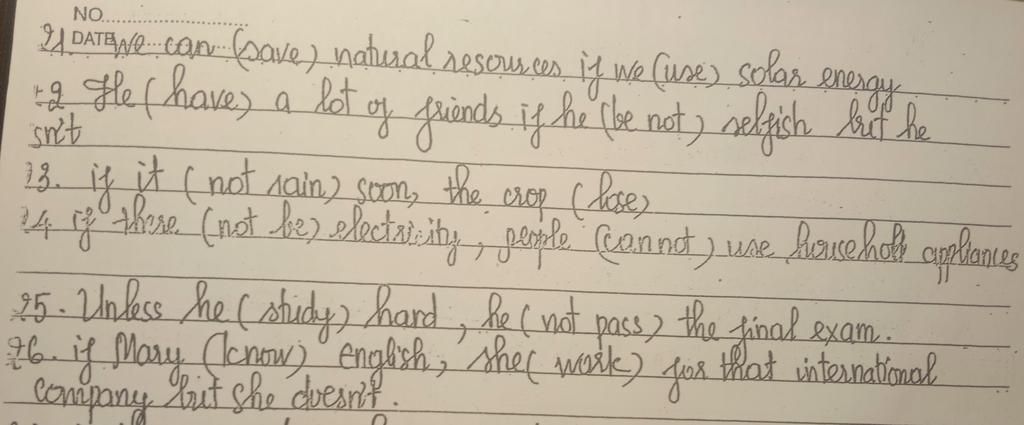 NO.
DATE
21. We can (save) natural resources if we (use) solar energy
22 He (have) a lot of friends if he (be not) selfish but he
isn't
23. if it (not rain) soon, the crop (lose)
24 if there (not be) electricity, people (cannot) use household appliances
25. Unless he (study) hard, he (not pass) the final exam.
26. if Mary (know) english, she (work) for that international
company but she doesn't.